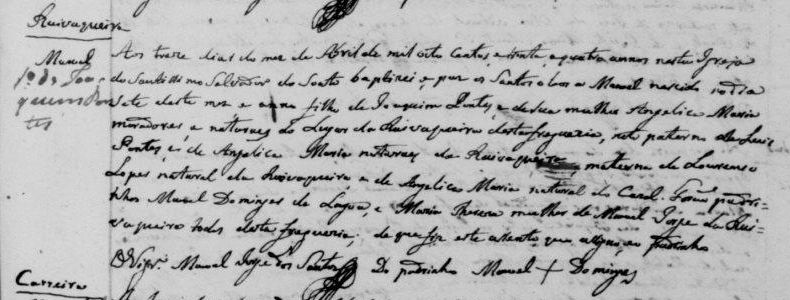 Ruivaqueira
Manoel
Aos treze dias do mez de Abril de mil oito centos e trinta, e quatro annos nesta Igreja
do Santissimo Salvador do Souto baptizei, e puz os Santos oleos a Manoel nascido no dia
sete deste mez e anno filho de Joaquim Pontes, e de sua mulher Angelica Maria
moradores, e naturaes do Lugar da Ruivaqueira desta freguezia, neto paterno de Luis
Pontes, e de Angelica Maria naturaes da Ruivaqueira, materno de Lourenso
Lopes natural da Ruivaqueira, e de Angelica Maria natural do Carol. Forão padri-
nhos Manoel Dominges da Lagoa, e Maria Thereza mulher de Manoel Jorge da Rui-
vaqueira todos desta freguezia; de que fiz este assento que assignei o padrinho
O Vigr.º Manoel Jorge dos Santos Do padrinho Manoel + Dominges
Carreira